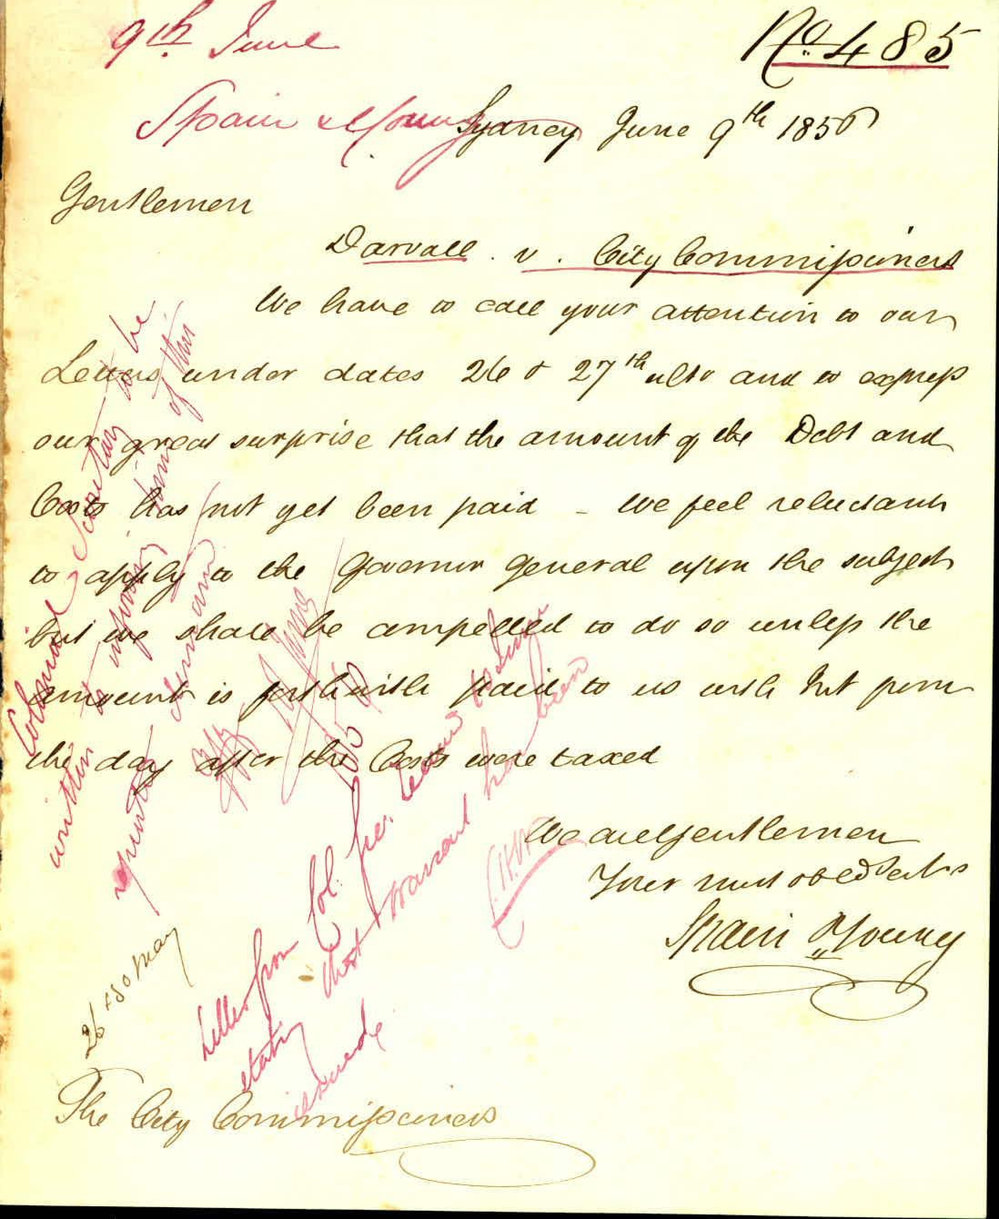 9th June
No. 485
Spain & Young
Sydney June 9th 1856
Gentlemen
Darvall . v . City Commissioners
We have to call your attention to our
Letters under dates 26 & 27th ulto and to express
our great surprise that the amount of the Debt and
Costs has not yet been paid - We feel reluctant
to apply to the Governor General upon the subject
but we shall be compelled to do so unless the
amount is forthwith paid to us with Int from
the day after the Costs were taxed
We are Gentlemen
Your most obed Servts
Spain & Young
The City Commissioners
Colonial Secretary to be
written to informing him of this
26 & 30 May
Letter from Col. Sec.
stating that Warrant has been
issued